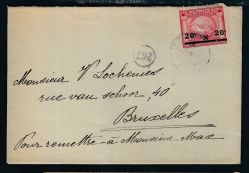 20c 20c
267
Monsieur V Lochemes
rue van schoor, 40
Bruxelles
Pour remettre à Monsieur Max